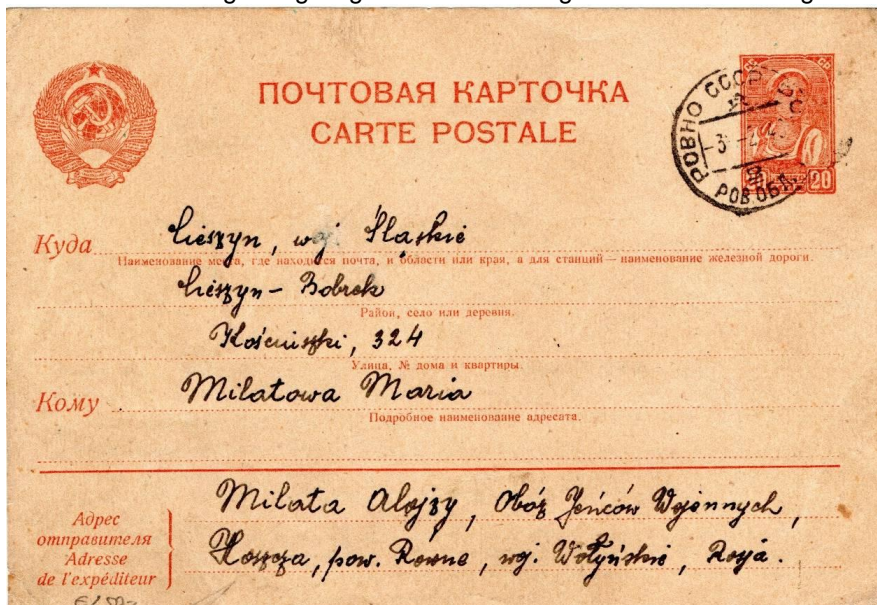 ПОЧТОВАЯ КАРТОЧКА
CARTE POSTALE
РОВНО СССР
РОВ.ОБЛ.
20 20
Куда Cieszyn, woj. Śląskie
Наименование места, где находится почта, и области или края, а для станций — наименование железной дороги.
Cieszyn – Bobrek
Район, село или деревня.
Kościuszki, 324
Улица, № дома и квартиры.
Кому Milatowa Maria
Подробное наименование адресата.
Адрес отправителя
Adresse de l'expéditeur
Milata Alojzy, Obóz Jeńców Wojennych,
Hoszcza, pow. Rowne, woj. Wołyńskie, Rosja.